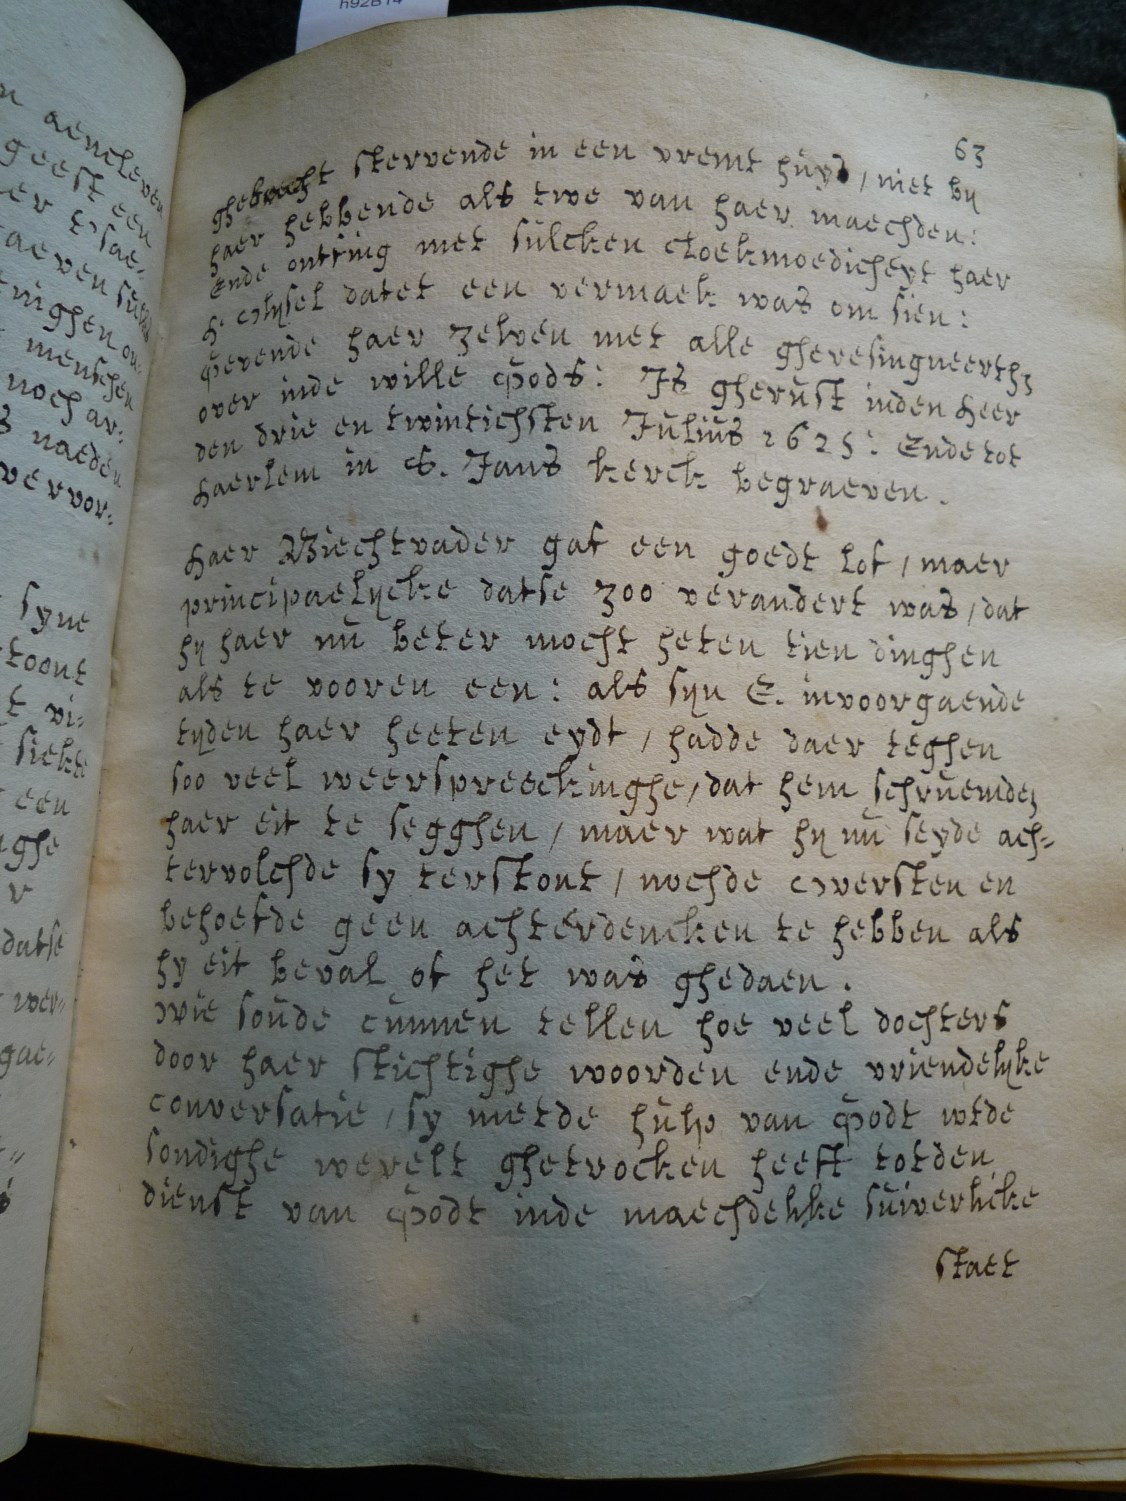 h92814
n aencleven
geest een
er t'sae-
aeven siele
inghen on-
menschen
noch ar-
s naeden
vervor-
syne
toont
t vi-
siekte
een
ghe
r
datse
wer-
gae-
63
ghebrocht stervende in een vremt huys / niet bij
haer hebbende als twe van haer maechden:
Ende ontfing met sulcken cloekmoedicheyt haer
H. Olijsel datet een vermaek was om sien:
Gevende haer zelven met alle gheresingneerth3
over inde wille Gods: Is gherust inden Heer
den drie en twintichsten Julius 1625: Ende tot
Haerlem in S. Jans kerck begraeven.
Haer Biechtvader gaf een goedt lof / maer
principaelijcke datse zoo verandert was / dat
hij haer nu beter mocht heten tien dinghen
als te vooren een: als sijn E. in voorgaende
tijden haer heeten eydt / hadde daer teghen
soo veel weerspreeckinghe / dat hem schruemdeh
haer eit te segghen / maer wat hij nu seyde ach-
tervolchde sy terstont / noch de Oversten en
behoefde geen achterdencken te hebben als
hy eit beval of het was ghedaen.
Wie soude cunnen tellen hoe veel dochters
door haer stichtighe woorden ende vriendelijke
conversatie / sy met de hulp van Godt wt de
sondighe werelt ghetrocken heeft tot den
dienst van Godt inde maechdelikke suiverlicke
staet